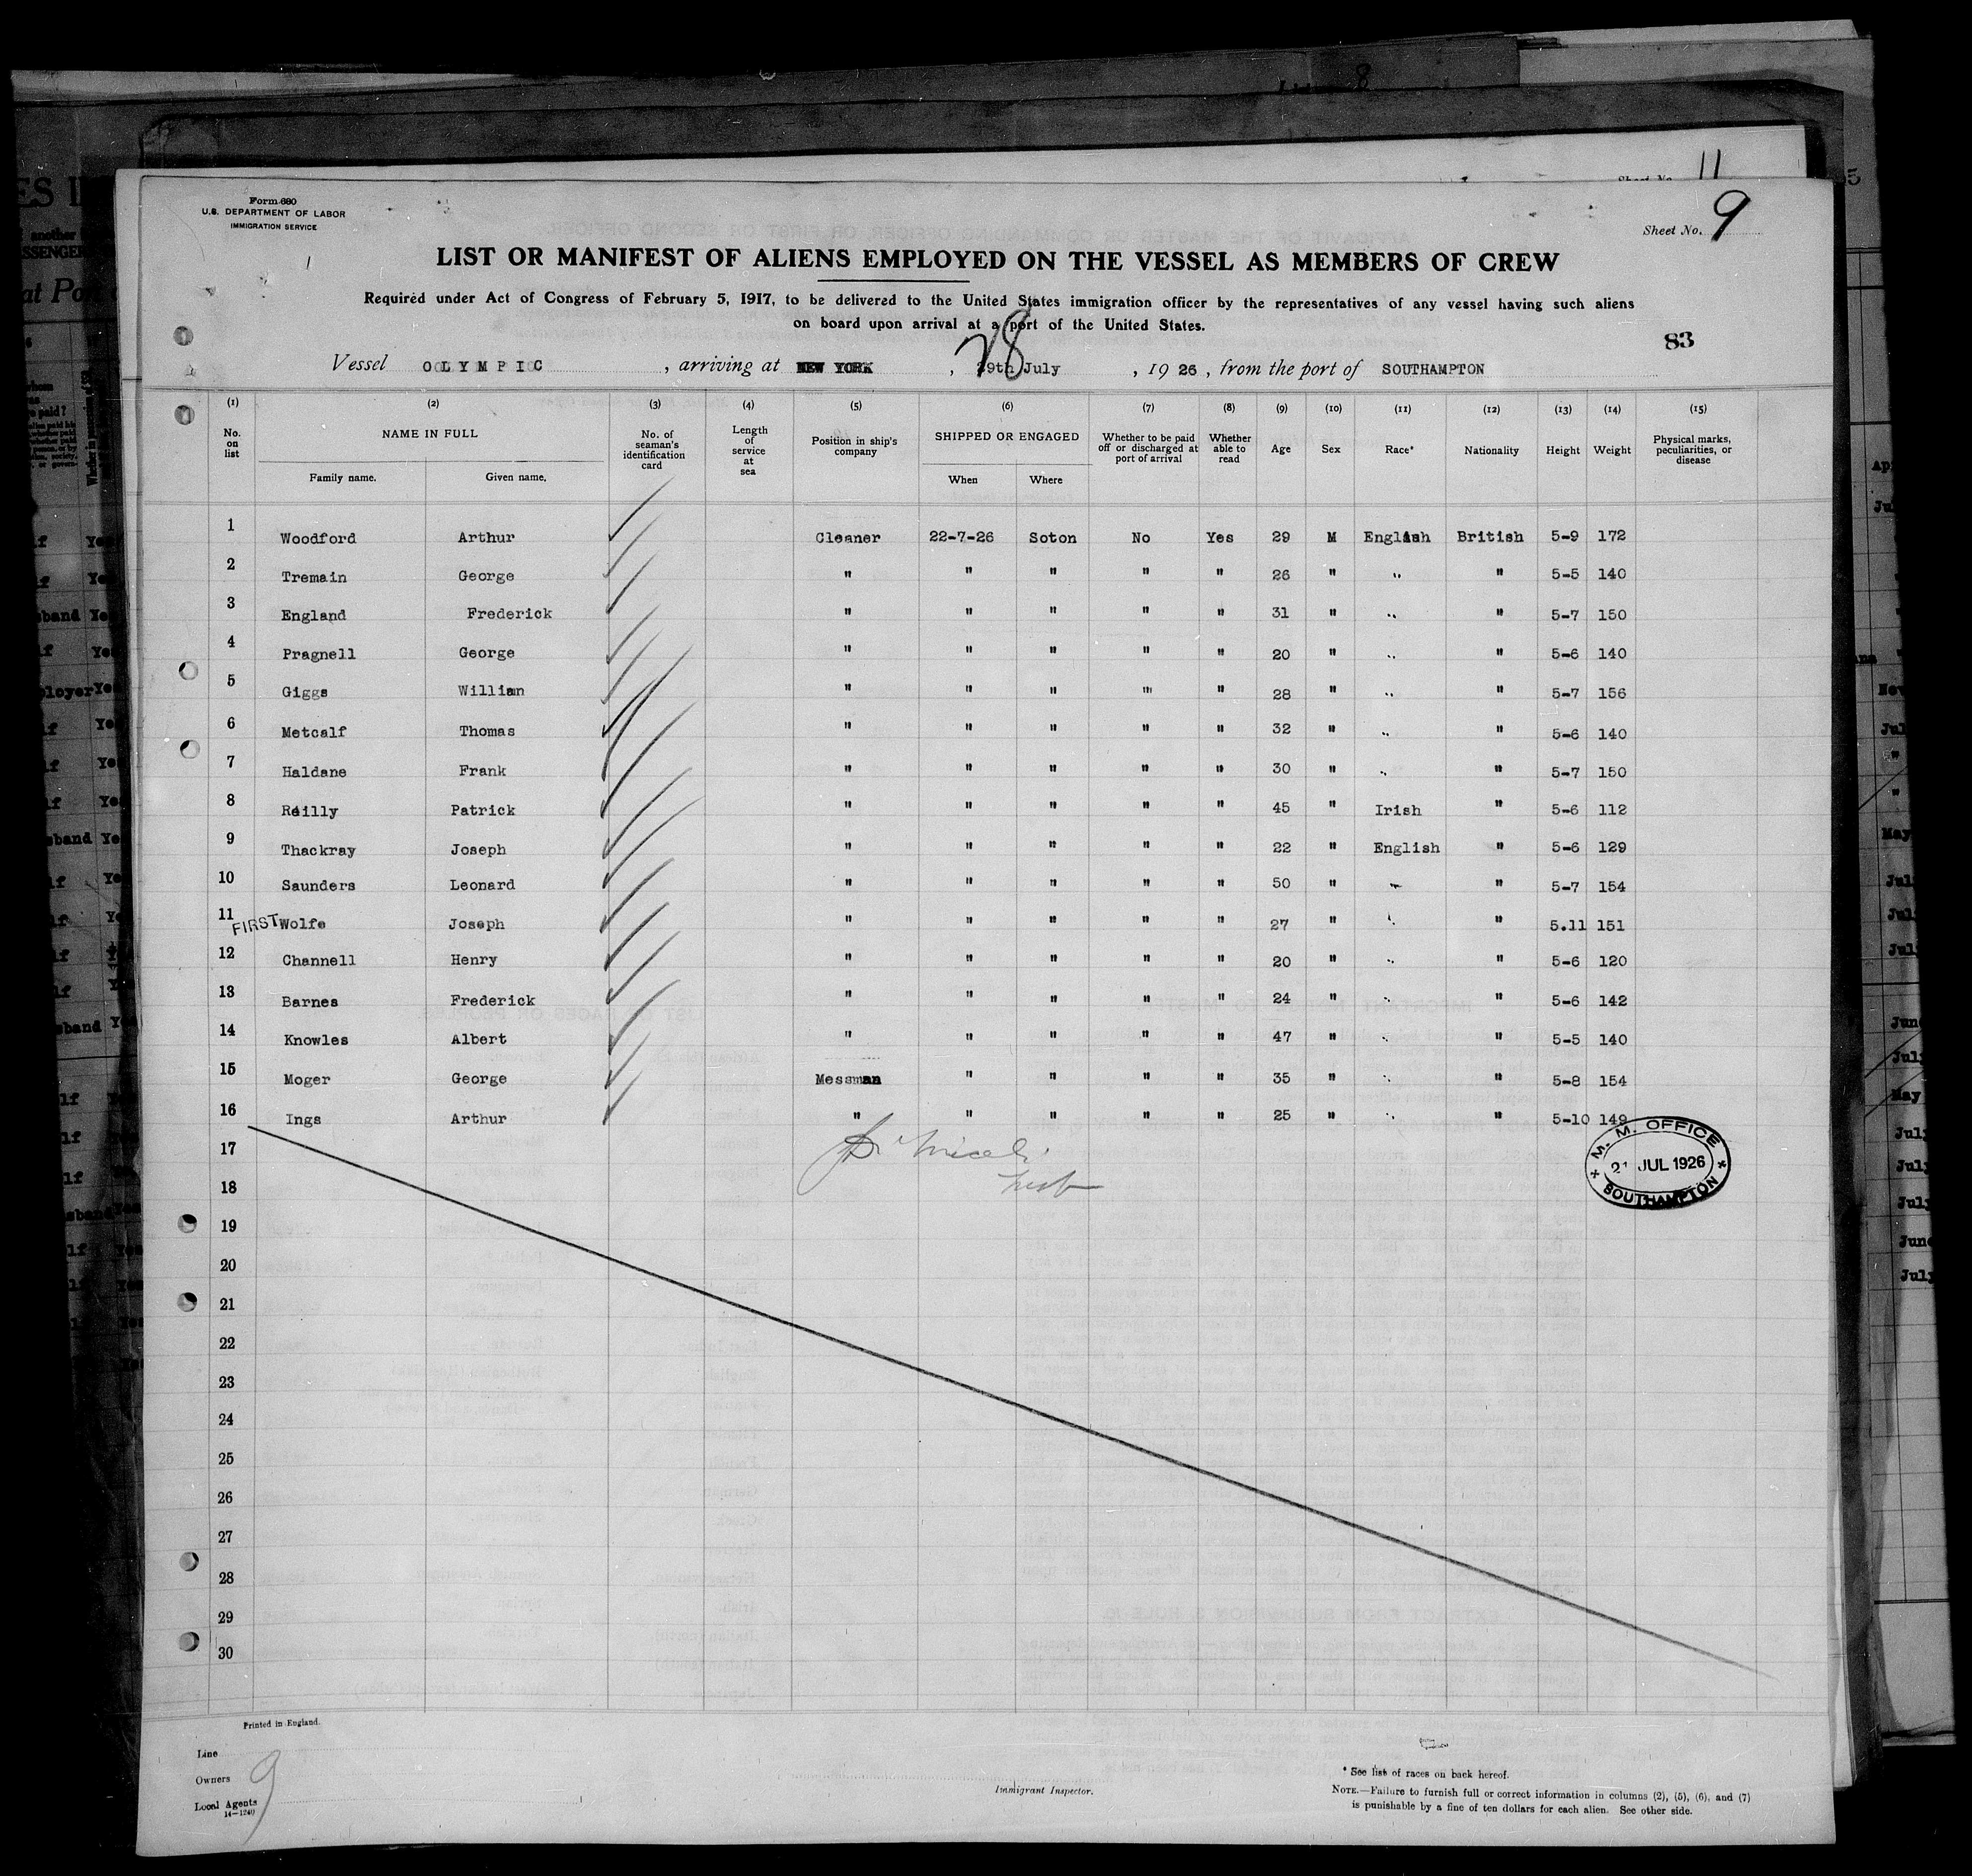 11
Form 680
U.S. DEPARTMENT OF LABOR
IMMIGRATION SERVICE
Sheet No. 9
LIST OR MANIFEST OF ALIENS EMPLOYED ON THE VESSEL AS MEMBERS OF CREW
Required under Act of Congress of February 5, 1917, to be delivered to the United States immigration officer by the representatives of any vessel having such aliens
on board upon arrival at a port of the United States.
83
28
Vessel OLYMPIC , arriving at NEW YORK , 29th July , 19 26 , from the port of SOUTHAMPTON
(1) (2) (3) (4) (5) (6) (7) (8) (9) (10) (11) (12) (13) (14) (15)
No. on list NAME IN FULL No. of seaman's identification card Length of service at sea Position in ship's company SHIPPED OR ENGAGED Whether to be paid off or discharged at port of arrival Whether able to read Age Sex Race* Nationality Height Weight Physical marks, peculiarities, or disease
Family name. Given name. When Where
1 Woodford Arthur Cleaner 22-7-26 Soton No Yes 29 M English British 5-9 172
2 Tremain George " " " " " 26 " " " 5-5 140
3 England Frederick " " " " " 31 " " " 5-7 150
4 Pragnell George " " " " " 20 " " " 5-6 140
5 Giggs William " " " " " 28 " " " 5-7 156
6 Metcalf Thomas " " " " " 32 " " " 5-6 140
7 Haldane Frank " " " " " 30 " " " 5-7 150
8 Reilly Patrick " " " " " 45 " Irish " 5-6 112
9 Thackray Joseph " " " " " 22 " English " 5-6 129
10 Saunders Leonard " " " " " 50 " " " 5-7 154
11 FIRST Wolfe Joseph " " " " " 27 " " " 5.11 151
12 Channell Henry " " " " " 20 " " " 5-6 120
13 Barnes Frederick " " " " " 24 " " " 5-6 142
14 Knowles Albert " " " " " 47 " " " 5-5 140
15 Moger George Messman " " " " 35 " " " 5-8 154
16 Ings Arthur " " " " " 25 " " " 5-10 149
17
18
19
20
21
22
23
24
25
26
27
28
29
30
M. M. OFFICE
21 JUL 1926
SOUTHAMPTON
Printed in England.
Line
Owners
Local Agents
14—1240
9
Immigrant Inspector.
* See list of races on back hereof.
NOTE.—Failure to furnish full or correct information in columns (2), (5), (6), and (7)
is punishable by a fine of ten dollars for each alien. See other side.